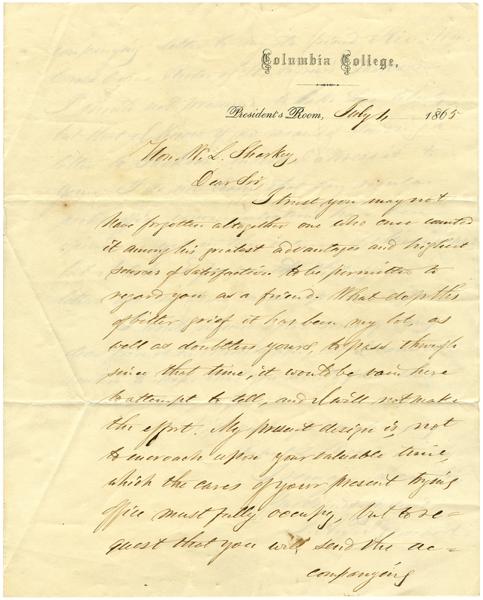 Columbia College,
President's Room, July 4 1865
Hon. W. L. Sharkey,
Dear Sir,
I trust you may not
have forgotten altogether one who once counted
it among his greatest advantages and highest
sources of satisfaction to be permitted to
regard you as a friend. What depths
of bitter grief it has been my lot, as
well as doubtless yours, to pass through
since that time, it would be vain here
to attempt to tell, and I will not make
the effort. My present design is, not
to encroach upon your valuable time,
which the cares of your present trying
office must fully occupy, but to re-
quest that you will send the ac-
companying